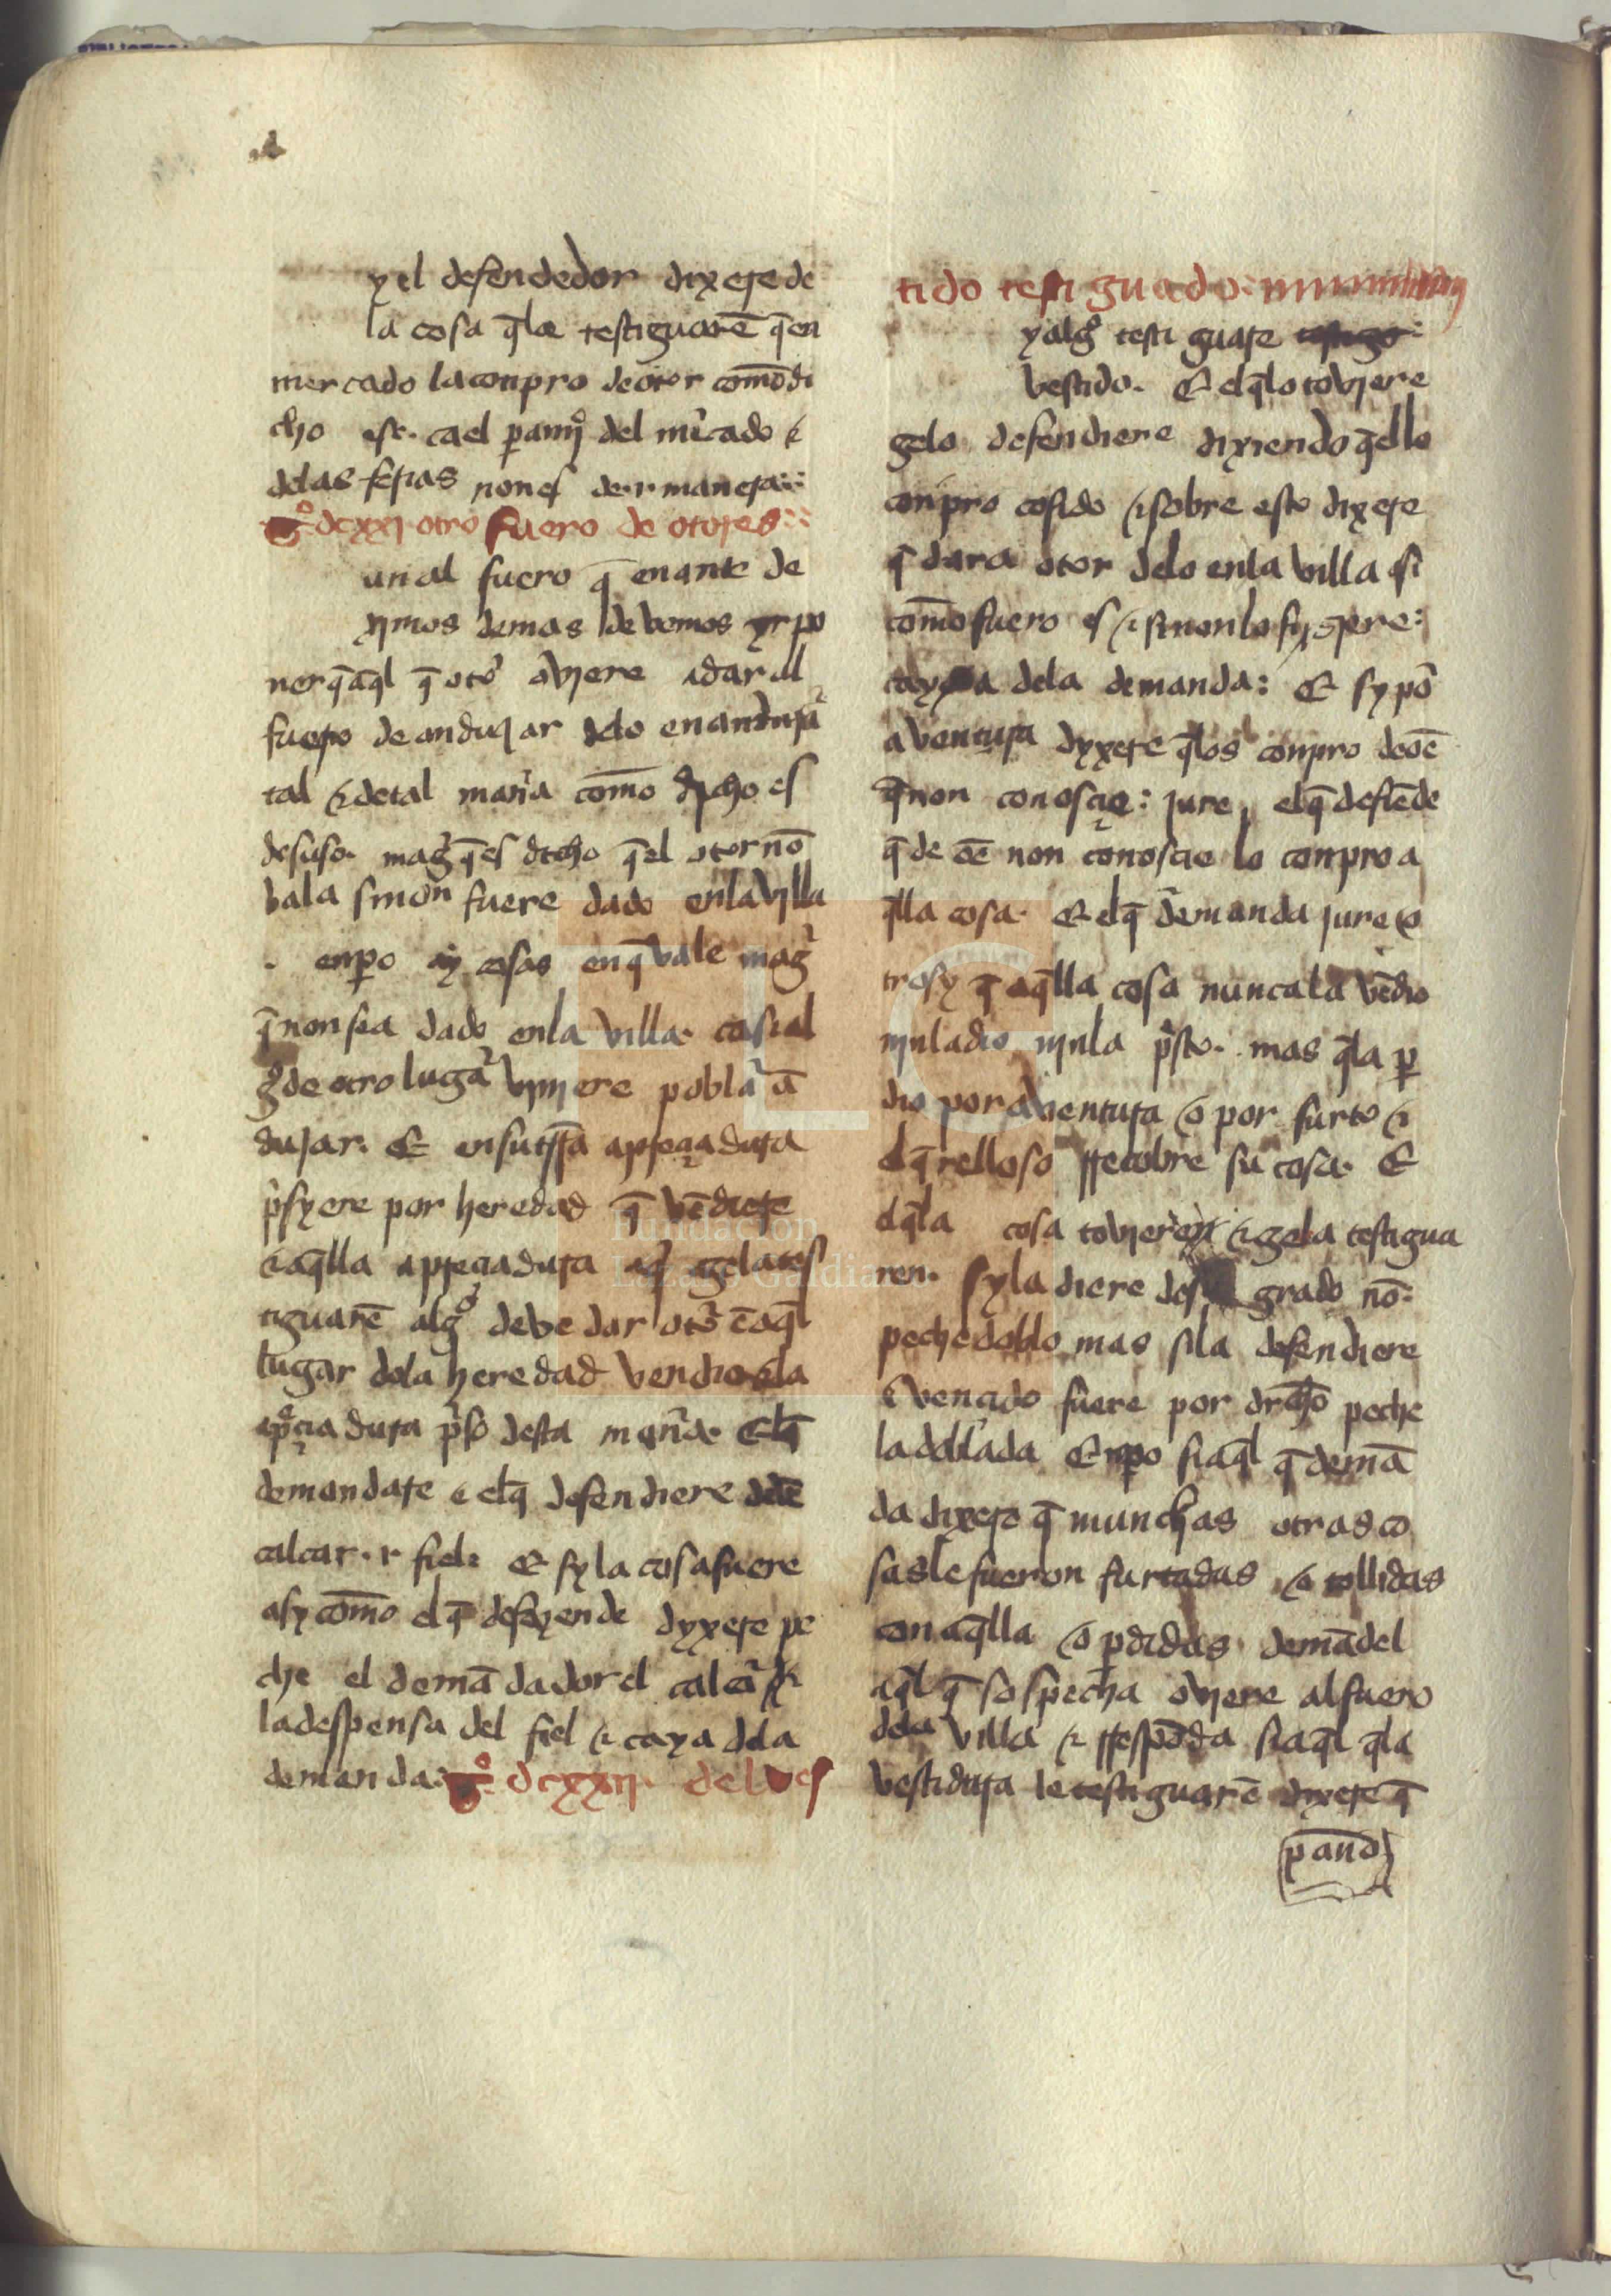 y el defendedor dixere de
la cosa q̄le testiguarē q̄ en
mercado la conpro de otor comōdi
cho es. ca el pamj̊ del mĩcado ⁊
delas ferias non es de .r. manera:
dcxxj otro fuero de otores:
un al fuero q̄ enante de
ximos demas devemos po
ner q̄ aq̄l q̄ otõ oviere adar al
fuero de andujar delo en andujã
tal ⁊ de tal manẽa comō dicho es
desuso. mag̃ q̄ es dicho q̄ el otor nō
bala sinon fuere dado enla villa
. enpo ay cosas en q̄ vale mag̃
q̄ non sea dado enla villa. ca si al
g̊ de otro lugã viniere poblã ā
dujar. E en su trr̄a apreçiadura
p̃syere por heredad q̄ vēdiere
⁊ aq̄lla apreçiadura aq̄ gela tes
tiguarē alg̊ deve dar otõ ē aq̄l
lugar dola heredad vendio ⁊ la
ap̊çiadura p̃so desta manẽa. E el q̄
demandare ⁊ el q̄ defendiere dē
calcar .r. fiel: E sy la cosa fuere
asy comō el q̄ defeyende dyxere pe
che el demādador el calcã ⁊
la despensa del fiel ⁊ caya dela
demanda: dcxxij. del ves
tido testiguado:
y alg̊ testiguare
vestido. E el q̄ lo toviere
gelo defendiere dixiendo q̄ el lo
conpro cosido ⁊ sobre esto dixere
q̄ dara otor delo enla villa si
comō fuero es ⁊ si non lo fiziere:
caya dela demanda: E sy põ
aventura dyxere q̄ los conpro de oē
q̄ non conosçie: jure el q̄ defiēde
q̄ de oē non conosçie lo conpro a
q̄lla cosa. E el q̄ demanda jure o
trosy q̄ aq̄lla cosa nunca la vēdio
nin la dio nin la p̃sto. mas q̄ la p
dio por aventura o por furto ⁊
el q̄relloso rrecobre su cosa. E
el q̄ la cosa toviere ⁊ gela testigua
ren. sy la diere de su grado nō:
peche doblo mas si la defendiere
⁊ vencido fuere por drcho peche
la doblada E enpo si aq̄l q̄ demā
da dixere q̄ munchas otras co
sas le fueron furtadas o tollidas
con aq̄lla o pdidas. demādel
aq̄l q̄ sospecha oviere al fuero
dela villa ⁊ rrespōda si aq̄l q̄ la
vestidura le testiguarē dixere q̄
pano
Fundación
Lázaro Galdiano